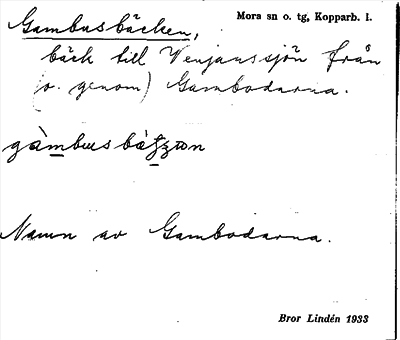 Gambusbäcken, Mora sn o. tg, Kopparb. l.
bäck till Venjanssjön från
(o. genom) Gambodarna.
Namn av Gambodarna.
Bror Lindén 1933